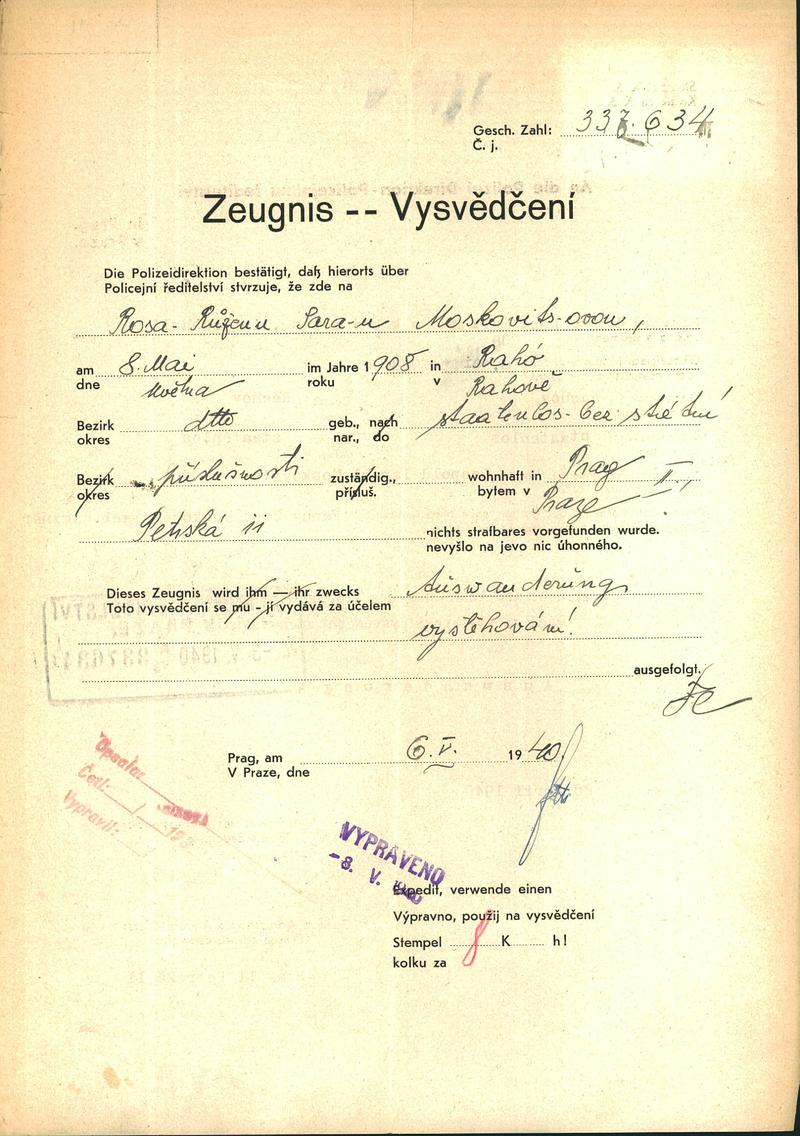 Gesch. Zahl: 337.634
Č. j.
Zeugnis -- Vysvědčení
Die Polizeidirektion bestätigt, daß hierorts über
Policejní ředitelství stvrzuje, že zde na
Rosa- Růženu Sara-u Moskovits-ovou,
am 8. Mai im Jahre 1908 in Rahó
dne května roku v Rahově
Bezirk dtto geb., nach staatenlos- bez státní
okres nar., do
Bezirk příslušnosti zuständig., wohnhaft in Prag II.,
okres přísluš. bytem v Praze
Petrská 11 nichts strafbares vorgefunden wurde.
nevyšlo na jevo nic úhonného.
Dieses Zeugnis wird ihm — ihr zwecks Auswanderung
Toto vysvědčení se mu - jí vydává za účelem
vystěhování.
ausgefolgt.
Prag, am 6. V. 1940
V Praze, dne
Opsala:
Četl:
Vypravil:
VYPRAVENO
-8. V. 1940
Expedit, verwende einen
Výpravno, použij na vysvědčení
Stempel 8 K h!
kolku za